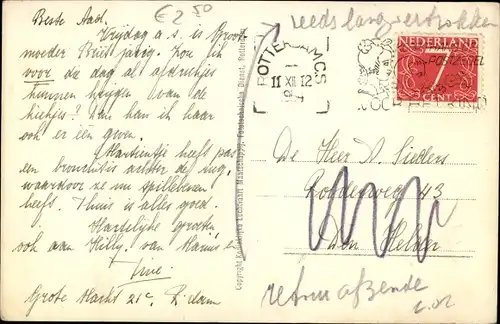 € 2.50
reeds lang vertrokken
Beste Aad.
Vrijdag a.s. is Groot-
moeder Briët jarig. Zou ik
voor die dag al afdrukjes
kunnen krijgen van de
kiekjes? Dan kan ik haar
ook er een geven.
Martientje heeft pas
een bronchitis achter de rug,
waardoor ze nu spillebenen
heeft. Thuis is alles goed.
Hartelijke groeten
ook aan Hilly, van Marius en
Tine.
Grote Markt 21c, S'dam
ROTTERDAM CS
11 XII 12
NEDERLAND
7
CENT
POSTZEGEL
De Heer A. Siedlers
43
Den Helder
retour afzender